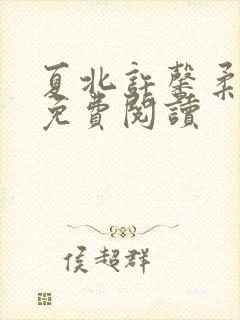 夏北許馨柔
免費閱讀
侯超群